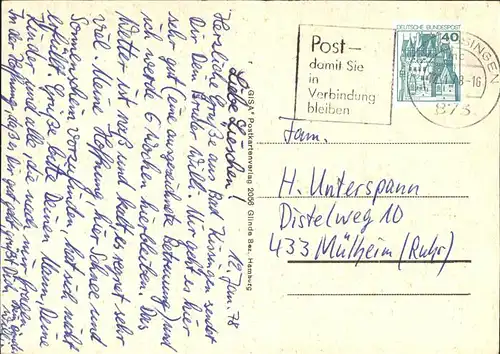 12. Jan. 78
Liebe Lieschen!
Herzliche Grüße aus Bad Kissingen sendet
Dir Dein Bruder Willi. Mir geht es hier
sehr gut (eine ausgezeichnete Betreuung) und
ich werde 6 Wochen hier bleiben. Das
Wetter ist naß und kalt es regnet sehr
viel. Meine Hoffnung, hier Schnee und
Sonnenschein vorzufinden, hat sich nicht
erfüllt. Grüße bitte Deinen Mann, Deine
Kinder und alle, die nach mir fragen.
In der Hoffnung, daß es Dir gut geht, grüßt Dich
Willi
"GISA" Postkartenverlag 2056 Glinde Bez. Hamburg
Post –
damit Sie
in
Verbindung
bleiben
DEUTSCHE BUNDESPOST
40
SINGEN
8-16
873
Fam.
H. Unterspann
Distelweg 10
433 Mülheim (Ruhr)